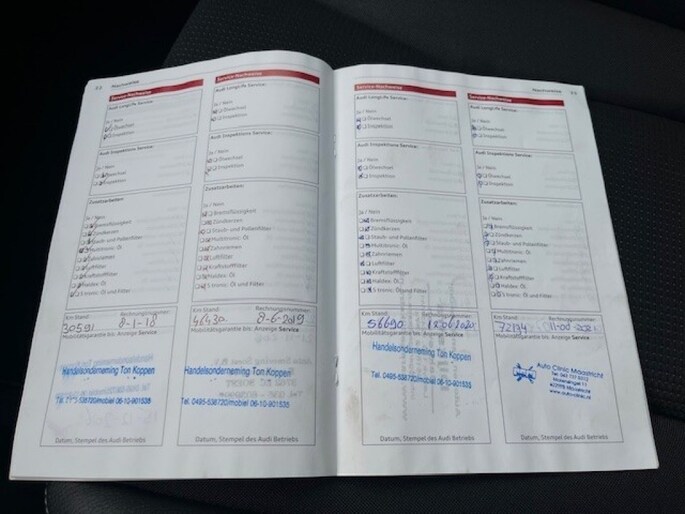 Nachweise
Service-Nachweise
Audi LongLife Service:
Ja / Nein
Ölwechsel
Inspektion
Audi Inspektions Service:
Ja / Nein
Ölwechsel
Inspektion
Zusatzarbeiten:
Ja / Nein
Bremsflüssigkeit
Zündkerzen
Staub- und Pollenfilter
Multitronic: Öl
Zahnriemen
Luftfilter
Kraftstofffilter
Haldex: Öl
S tronic: Öl und Filter
Km Stand:
30591
8-1-18
Mobilitätsgarantie bis: Anzeige Service
Handelsonderneming Ton Koppen
Tel. 0495-536720/mobiel 06-10-901535
Datum, Stempel des Audi Betriebs
Service-Nachweise
Audi LongLife Service:
Ja / Nein
Ölwechsel
Inspektion
Audi Inspektions Service:
Ja / Nein
Ölwechsel
Inspektion
Zusatzarbeiten:
Ja / Nein
Bremsflüssigkeit
Zündkerzen
Staub- und Pollenfilter
Multitronic: Öl
Zahnriemen
Luftfilter
Kraftstofffilter
Haldex: Öl
S tronic: Öl und Filter
Km Stand:
46430
8-6-2019
Mobilitätsgarantie bis: Anzeige Service
Handelsonderneming Ton Koppen
Tel. 0495-536720/mobiel 06-10-901535
Datum, Stempel des Audi Betriebs
Service-Nachweise
Audi LongLife Service:
Ja / Nein
Ölwechsel
Inspektion
Audi Inspektions Service:
Ja / Nein
Ölwechsel
Inspektion
Zusatzarbeiten:
Ja / Nein
Bremsflüssigkeit
Zündkerzen
Staub- und Pollenfilter
Multitronic: Öl
Zahnriemen
Luftfilter
Kraftstofffilter
Haldex: Öl
S tronic: Öl und Filter
Km Stand:
56690
Mobilitätsgarantie bis: Anzeige Service
Handelsonderneming Ton Koppen
Tel. 0495-536720/mobiel 06-10-901535
Datum, Stempel des Audi Betriebs
Nachweise
Service-Nachweise
Audi LongLife Service:
Ja / Nein
Ölwechsel
Inspektion
Audi Inspektions Service:
Ja / Nein
Ölwechsel
Inspektion
Zusatzarbeiten:
Ja / Nein
Bremsflüssigkeit
Zündkerzen
Staub- und Pollenfilter
Multitronic: Öl
Zahnriemen
Luftfilter
Kraftstofffilter
Haldex: Öl
S tronic: Öl und Filter
Km Stand:
72134
Mobilitätsgarantie bis: Anzeige Service
Auto Clinic Maastricht
Datum, Stempel des Audi Betriebs